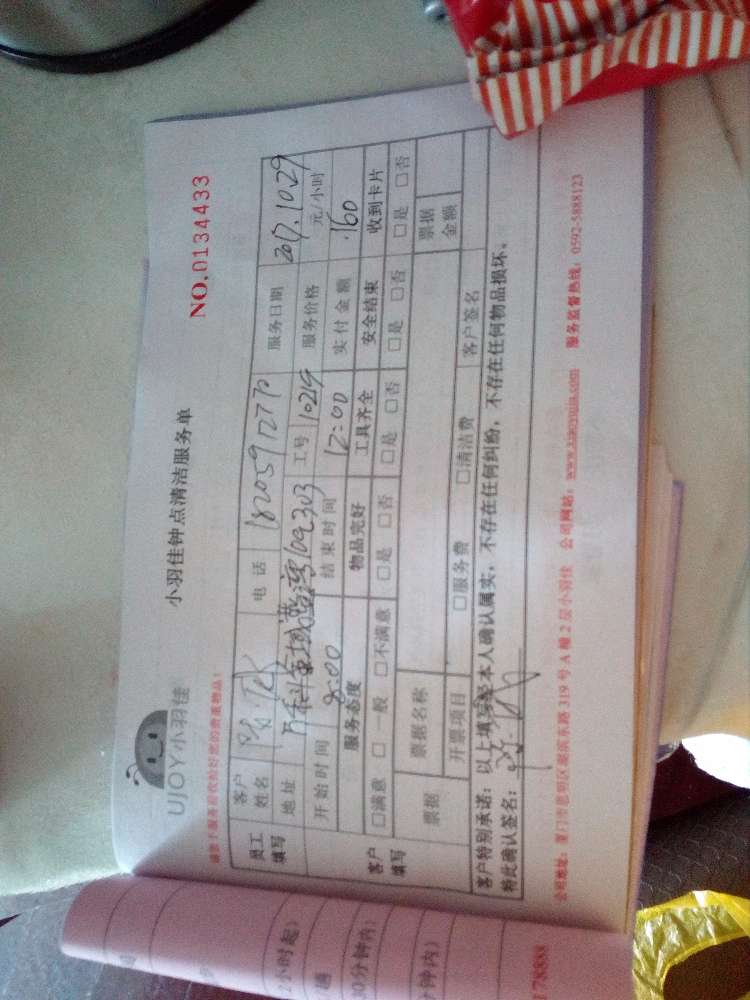 UJOY小羽佳
小羽佳钟点清洁服务单
NO.0134433
员工填写
客户姓名
电话 18205912770
服务日期 2017.10.29
地址
工号 10219
服务价格 元/小时
开始时间 8:00
结束时间 12:00
实付金额 160
客户填写
服务态度 物品完好 工具齐全 安全结束 收到卡片
□满意 □一般 □不满意 □是 □否 □是 □否 □是 □否 □是 □否
票据 票据名称 票据金额
开票项目 □服务费 □清洁费 客户签名
客户特别承诺：以上填写经本人确认属实，不存在任何纠纷，不存在任何物品损坏。
特此确认签名：
公司地址：厦门市思明区湖滨东路319号A幢2层小羽佳 公司网站：www.xiaoyujia.com 服务监督热线：0592-5888123
2小时起)
30分钟内)
分钟内)
78888